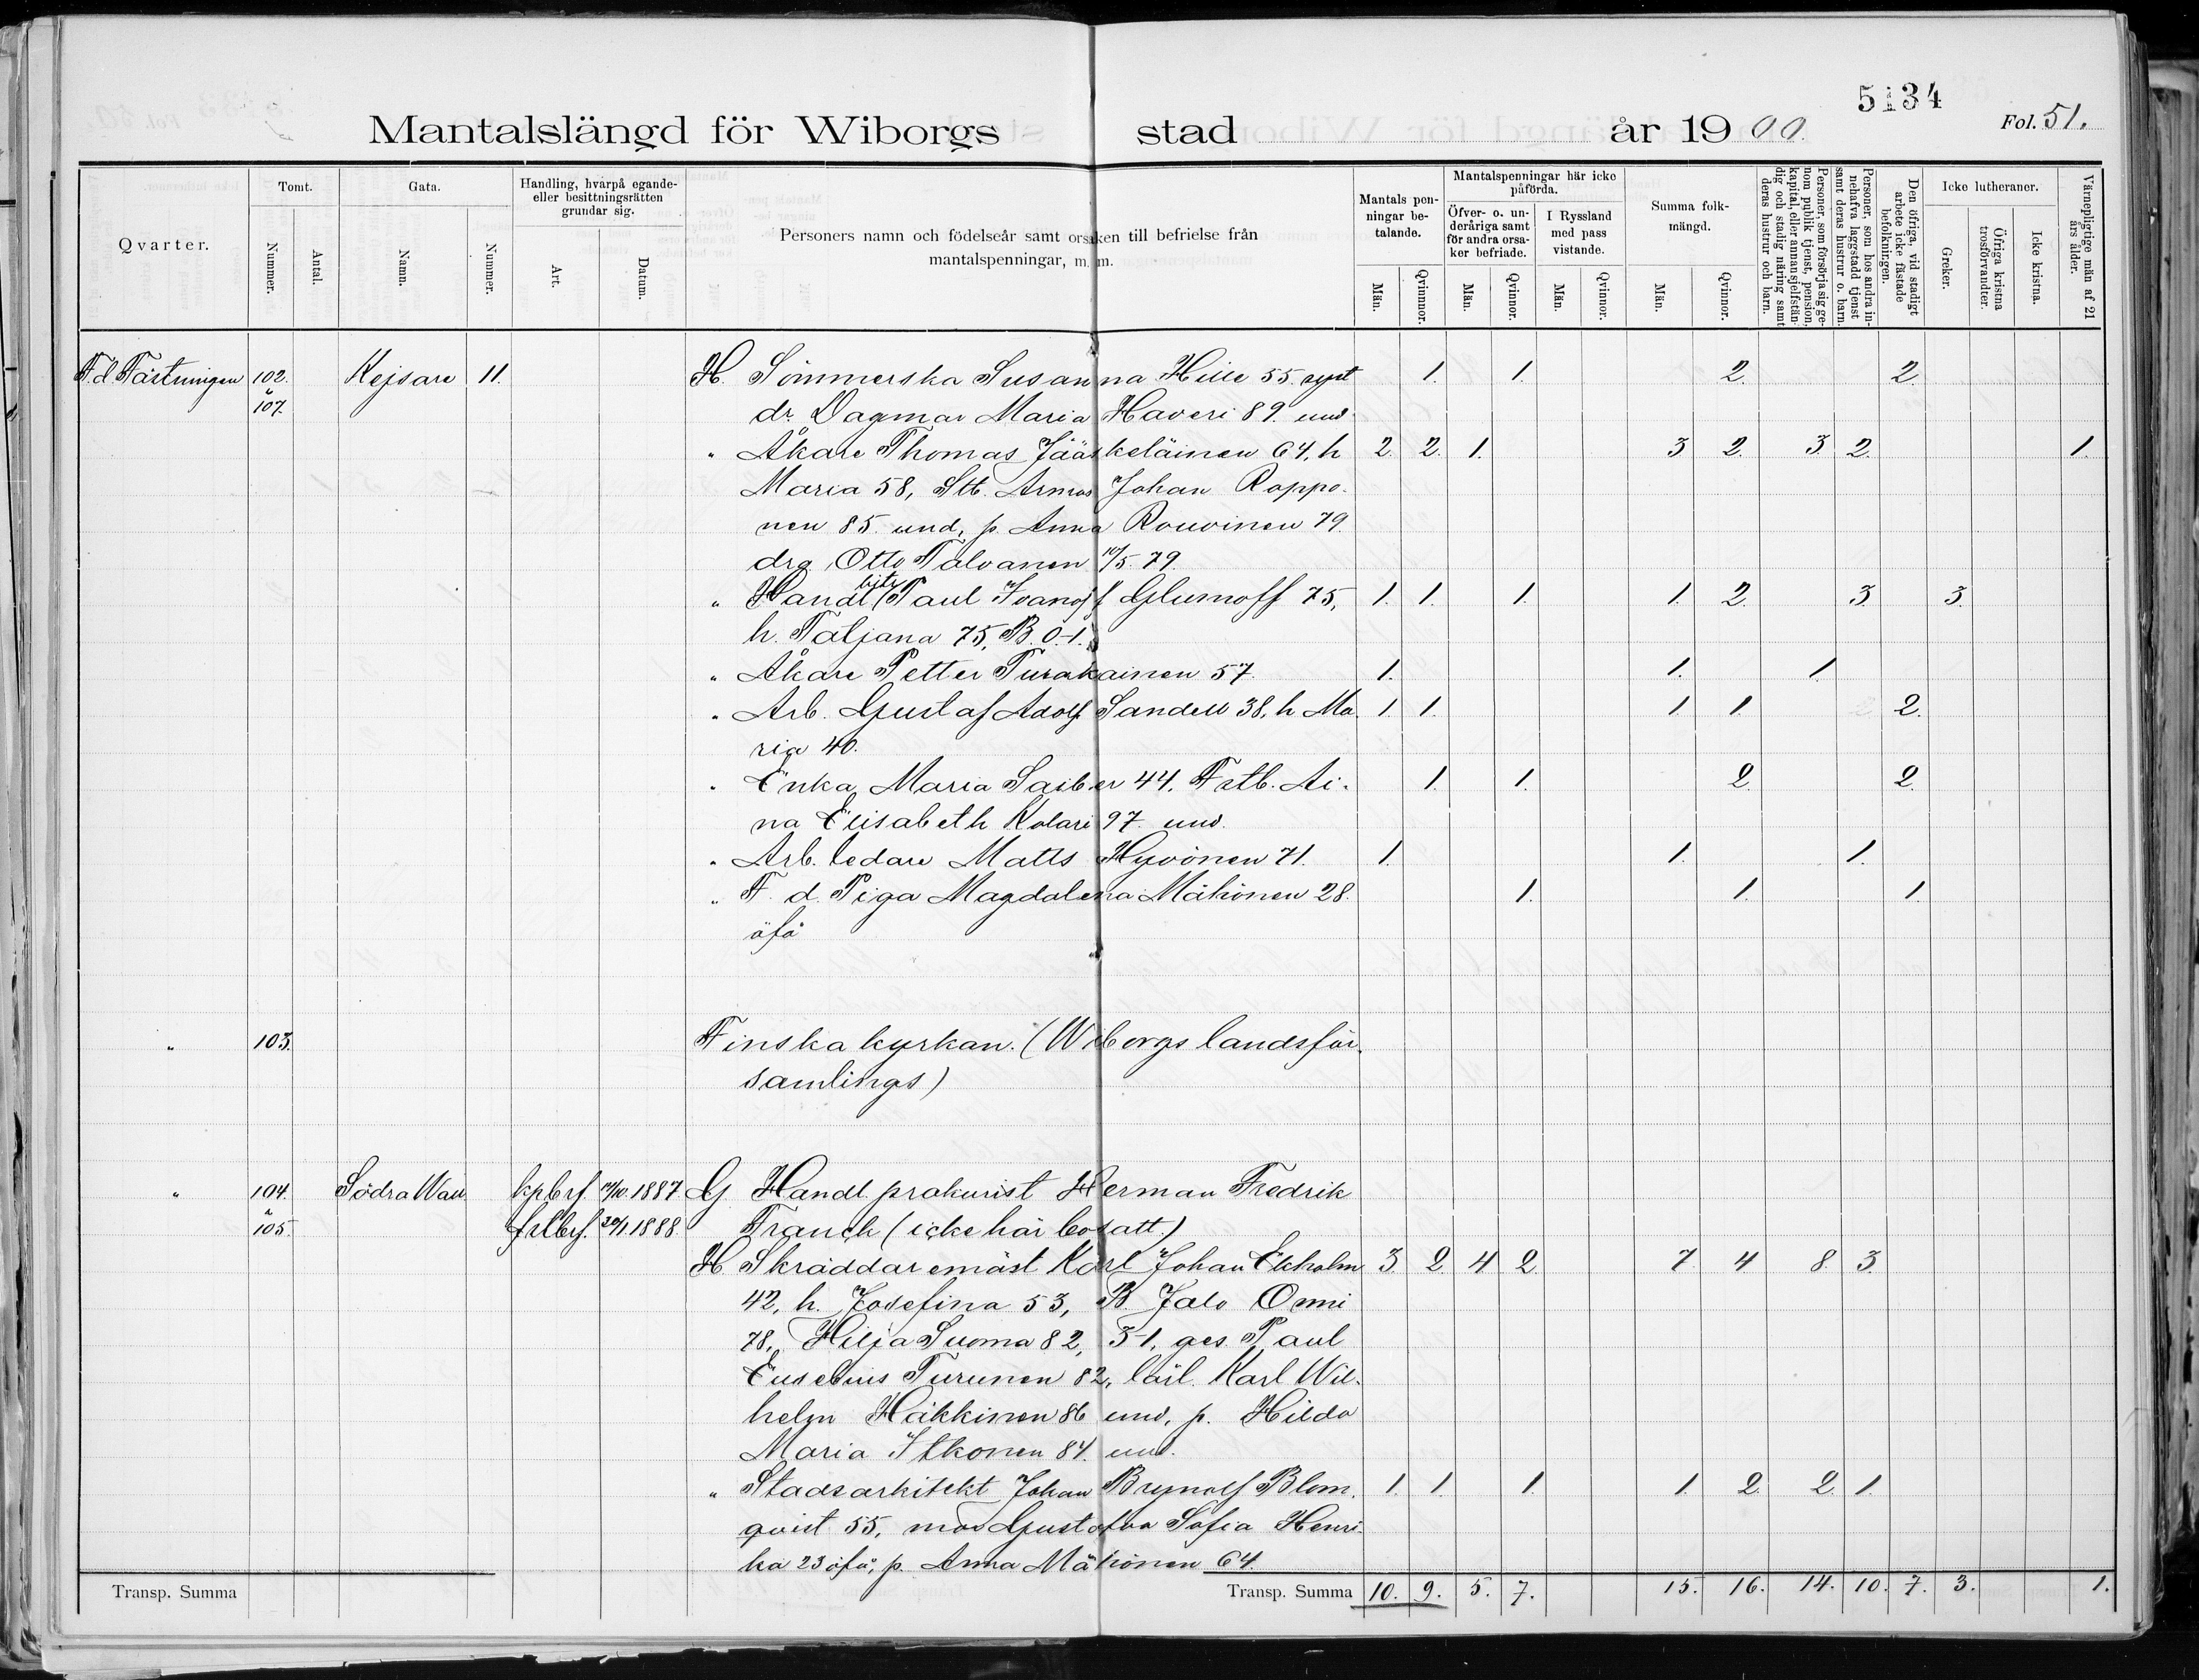 5134
Mantalslängd för Wiborgs stad år 1900. Fol. 51.
Qvarter.
Tomt.
Nummer.
Antal.
Gata.
Namn.
Nummer.
Handling, hvarpå egande- eller besittningsrätten grundar sig.
Art.
Datum.
Personers namn och födelseår samt orsaken till befrielse från
mantalspenningar, m. m.
Mantals penningar betalande.
Män.
Qvinnor.
Mantalspenningar här icke påförda.
Öfver- o. underåriga samt för andra orsaker befriade.
Män.
Qvinnor.
I Ryssland med pass vistande.
Män.
Qvinnor.
Summa folkmängd.
Män.
Qvinnor.
Personer, som försörja sig genom publik tjenst, pension, kapital, eller annan sjelfständig och stadig näring samt deras hustrur och barn.
Personer, som hos andra innehafva laggstadd tjenst samt deras hustrur o. barn.
Den öfriga, vid stadigt arbete icke fästade befolkningen.
Icke lutheraner.
Greker.
Öfriga kristna trosförvandter.
Icke kristna.
Värnepligtige män af 21 års ålder.
F.d. Fästningen 102. Kejsare 11. H. Sömmerska Susanna Hille 55. synt 1. 1. 2. 2.
107. dr. Dagmar Maria Haveri 89. und.
" Åkare Thomas Jääskeläinen 64, h 2. 2. 1. 3 2. 3 2. 1.
Maria 58, Stb. Armas Johan Roppo-
nen 85. und, p. Anna Rouvinen 79.
drg. Otto Talvanen 10/5. 79.
" Handl. bitr. Paul Ivanoff Glumoff 75, 1. 1. 1. 1. 2. 3. 3.
h. Tatjana 75, B. 0-1.
" Åkare Petter Turakainen 57. 1. 1. 1.
" Arb. Gustaf Adolf Sandell 38, h Ma 1. 1. 1. 1. 2.
ria 40.
" Enka Maria Saiber 44. Fstb. Ai- 1. 1. 2. 2.
na Elisabeth Kolari 97. und.
" Arb. ledare Matts Hyvönen 71. 1. 1. 1.
" F. d. Piga Magdalena Mähönen 28. 1. 1. 1.
öfå
" 103. Finska kyrkan. (Wiborgs landsför-
samlings)
" 104. Södra Wall. kpbrf. 14/10.1887. G Handl. prokurist Herman Fredrik
105. frlbrf. 20/1.1888. Tranck (icke här bosatt.)
H Skräddaremäst Karl Johan Ekholm 3. 2. 4 2. 7. 4 8. 3.
42, h. Josefina 53, B. Jalo Onni
78, Hilja Suoma 82, 3-1, ges. Paul
Eusebius Turunen 82, lärl. Karl Wil-
helm Häkkinen 86 und, p. Hilda
Maria Itkonen 84. und.
" Stadsarkitekt Johan Brynolf Blom- 1. 1. 1. 1. 2. 2. 1.
qvist 55, mor Gustafva Sofia Henri-
ka 23 öfå, p. Anna Mähönen 64.
Transp. Summa Transp. Summa 10. 9. 5. 7. 15. 16. 14. 10. 7. 3. 1.